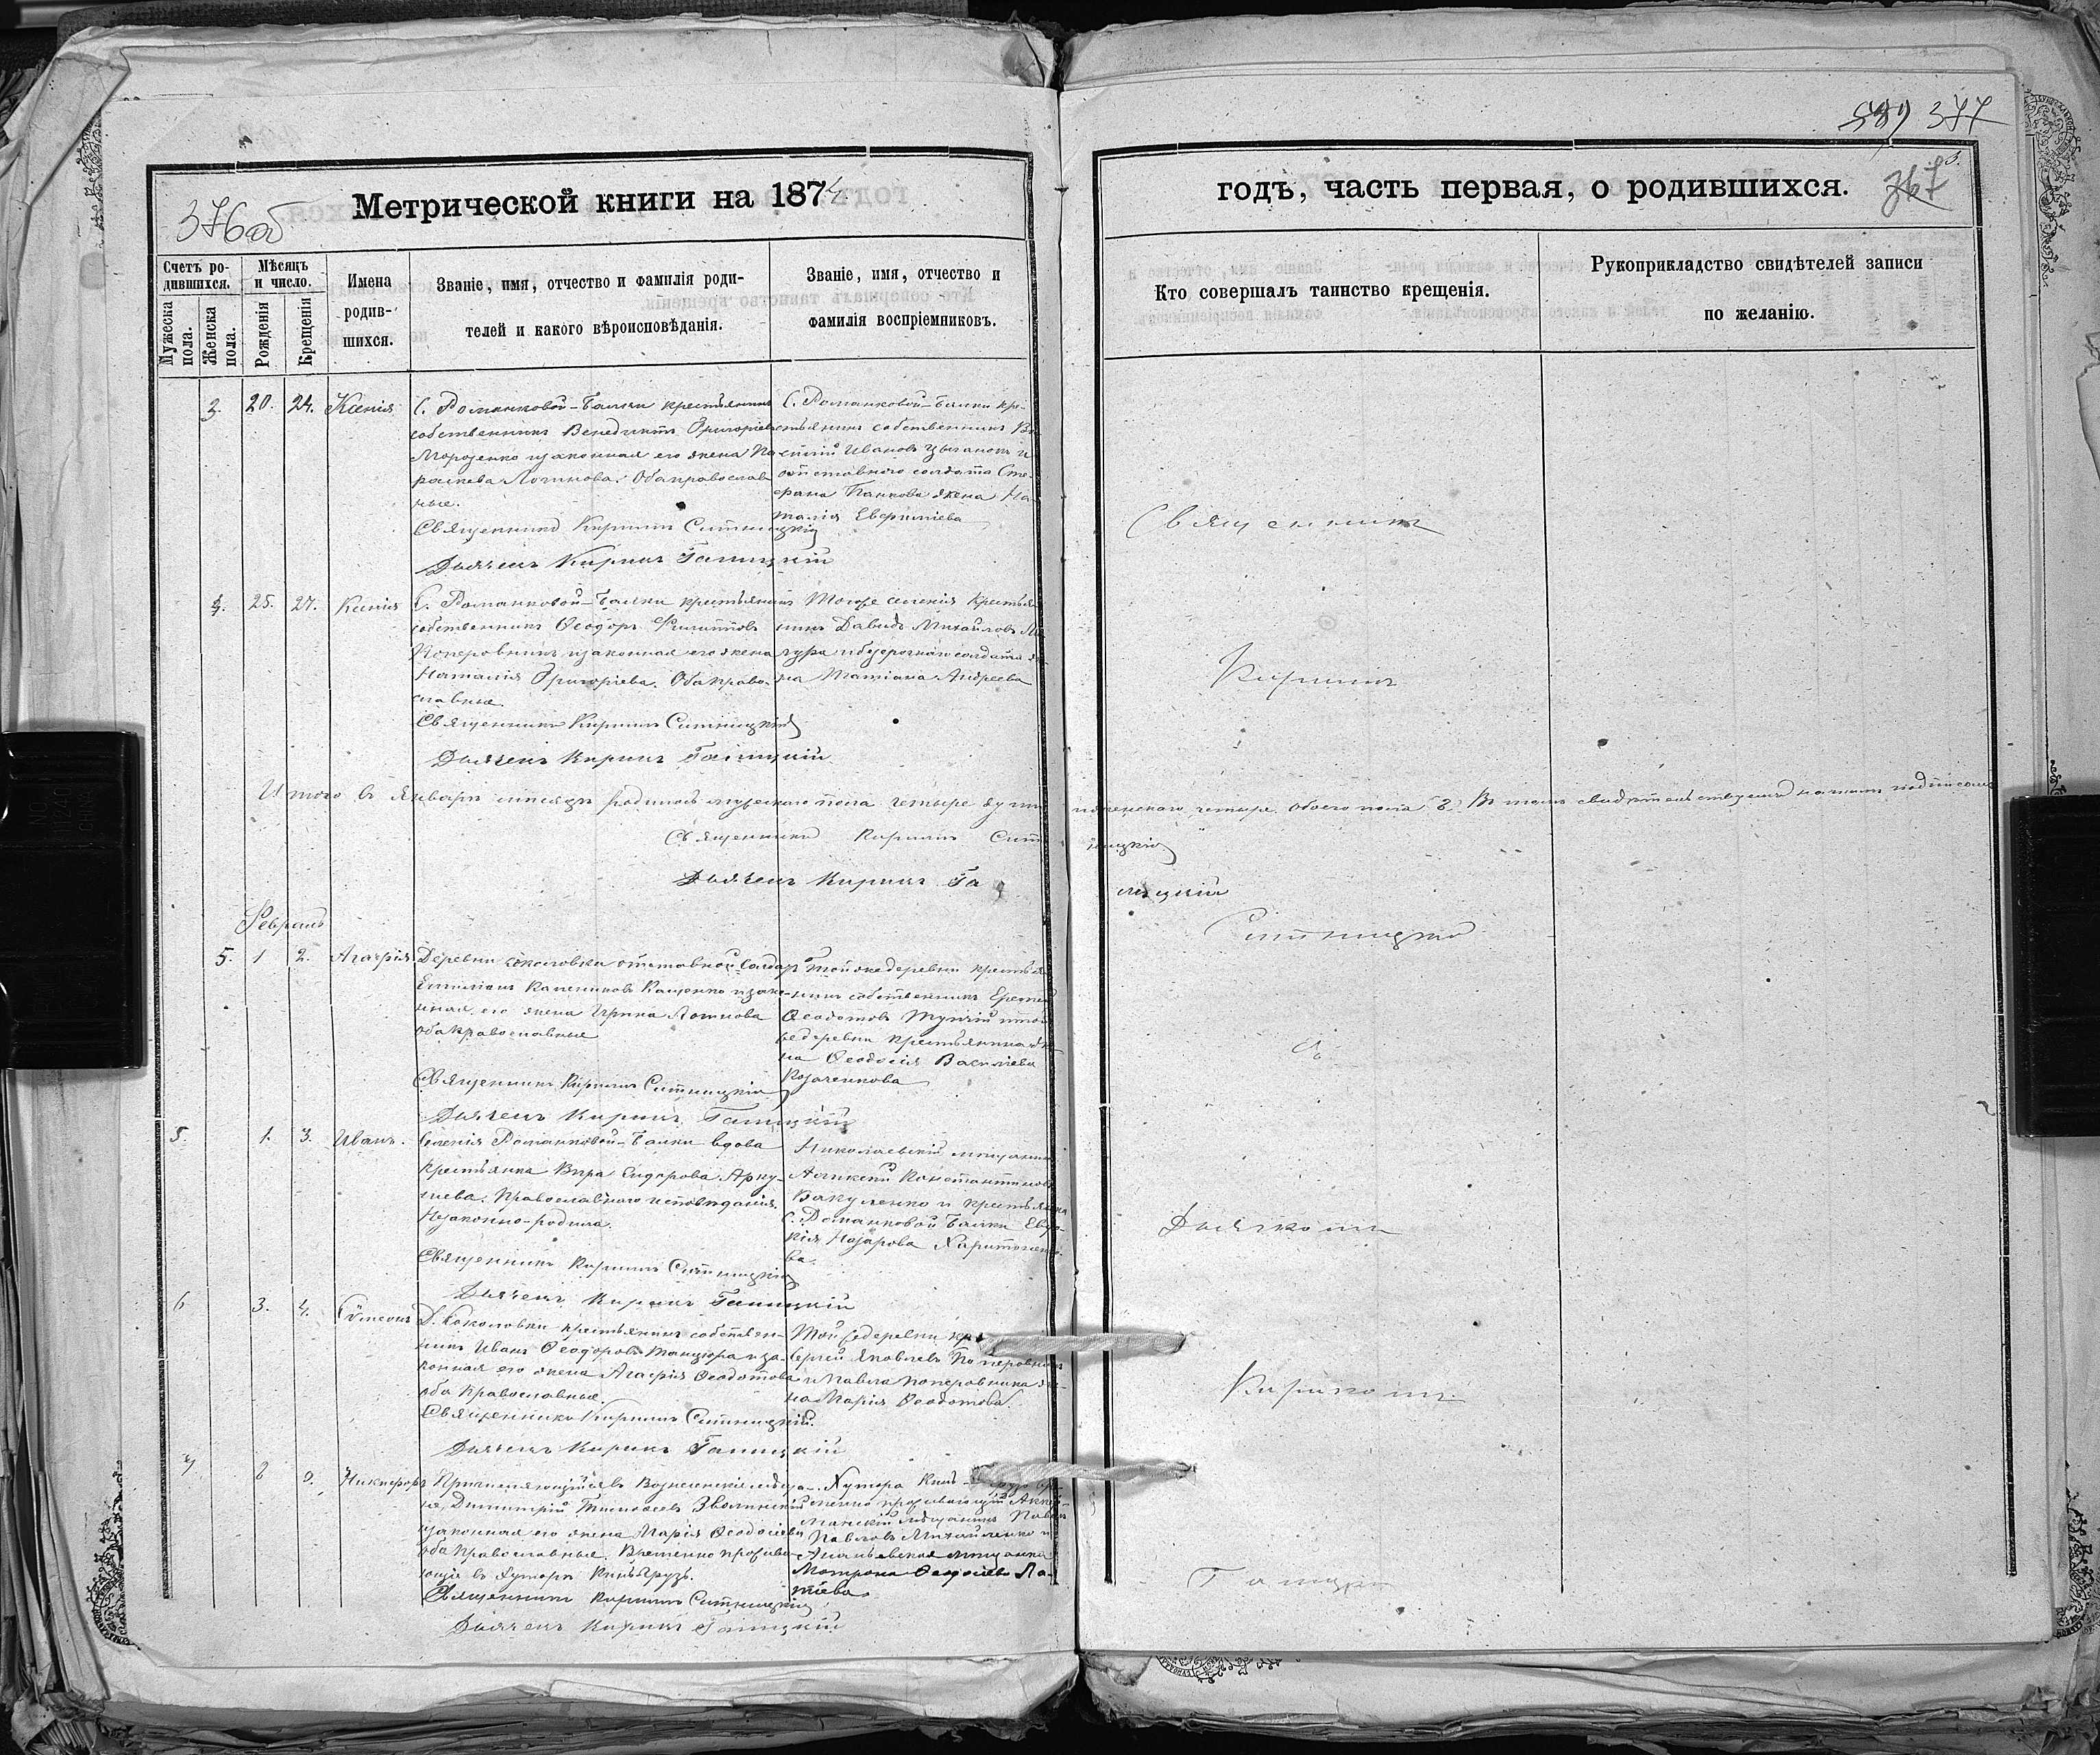 589 377
376об
Метрической книги на 1874
годъ, часть первая, о родившихся.
367
Счетъ ро-
дившихся.
Мужеска
пола.
Женска
пола.
Мѣсяцъ
и число.
Рожденія
Крещенія
Имена
родив-
шихся.
Званіе, имя, отчество и фамилія роди-
телей и какого вѣроисповѣданія.
Званіе, имя, отчество и
фамилія воспріемниковъ.
Кто совершалъ таинство крещенія.
Рукоприкладство свидѣтелей записи
по желанію.
3. 20. 24. Ксенія
С. Романковой-Балки крестьянинъ
собственникъ Венедиктъ Григоріевъ
Морозенко и законная его жена Па-
раскева Логинова. Оба православ-
ные.
Священникъ Кириллъ Ситницкій
Дьячекъ Кирикъ Галицкій
С. Романковой-Балки кре-
стьянинъ собственникъ Ва-
силій Ивановъ Цыганокъ и
отставного солдата Сте-
фана Панкова жена На-
талія
4. 25. 27. Ксенія
С. Романковой-Балки крестьянинъ
собственникъ Ѳеодоръ Филипповъ
Коперовникъ и законная его жена
Наталія Григоріева. Оба право-
славные
Священникъ Кириллъ Ситницкій
Дьячекъ Кирикъ Галицкій
Тогоже селенія крестья-
нинъ Давидъ Михайловъ
солдата же-
на Татіана Андреева
Итого въ Январѣ мѣсяцѣ родилось мужескаго пола четыре
женскаго четыре обоего пола 8. Въ томъ свидѣтельствуемъ нашимъ подписомъ
Священникъ Кириллъ Ситницкій
Дьячекъ Кирикъ Галицкій
Февраль
5. 1 2. Агафія
Деревни Соколовки отставной солдатъ
Кащенко и зако-
нная его жена Ирина Логинова
оба православные
Священникъ Кириллъ Ситницкій
Дьячекъ Кирикъ Галицкій
Той же деревни крестья-
нинъ собственникъ
Ѳеодотовъ и той
же деревни крестьянина же-
на Ѳеодосія Василіева
Козаченкова
5. 1. 3. Иванъ.
Селенія Романковой-Балки вдова
крестьянка Вѣра Сидорова Арку-
шева. Православнаго исповѣданія.
Незаконно-родила.
Священникъ Кириллъ Ситницкій
Дьячекъ Кирикъ Галицкій
Николаевскій мѣщанинъ
Алексѣй Константиновъ
Вакуленко и крестьянка
С. Романковой Балки Евдо-
кія Назарова Харитоненко-
ва.
6 3. 4. Сѵмеонъ
Д. Соколовки крестьянинъ собствен-
никъ Иванъ Ѳеодоровъ и за-
конная его жена Агафія Ѳеодотова
оба православные.
Священникъ Кириллъ Ситницкій
Дьячекъ Кирикъ Галицкій
Той же деревни
Сергѣй Яковлевъ Коперовникъ
и Павла Коперовника же-
на Марія Ѳеодотова.
7 8 9. Никифоръ
Димитрій Тимоѳеевъ
и законная его жена Марія Ѳеодосіева
оба православные. Временно прожива-
ющіе въ хуторѣ
Священникъ Кириллъ Ситницкій
Дьячекъ Кирикъ Галицкій
Хутора
проживающій Аккер-
манскій мѣщанинъ Павелъ
Павловъ Михайленко и
Ананьевская мѣщанка
Матрона Ѳеодосіева
Священникъ
Кириллъ
Ситницкій
съ
Дьячкомъ
Кирикомъ